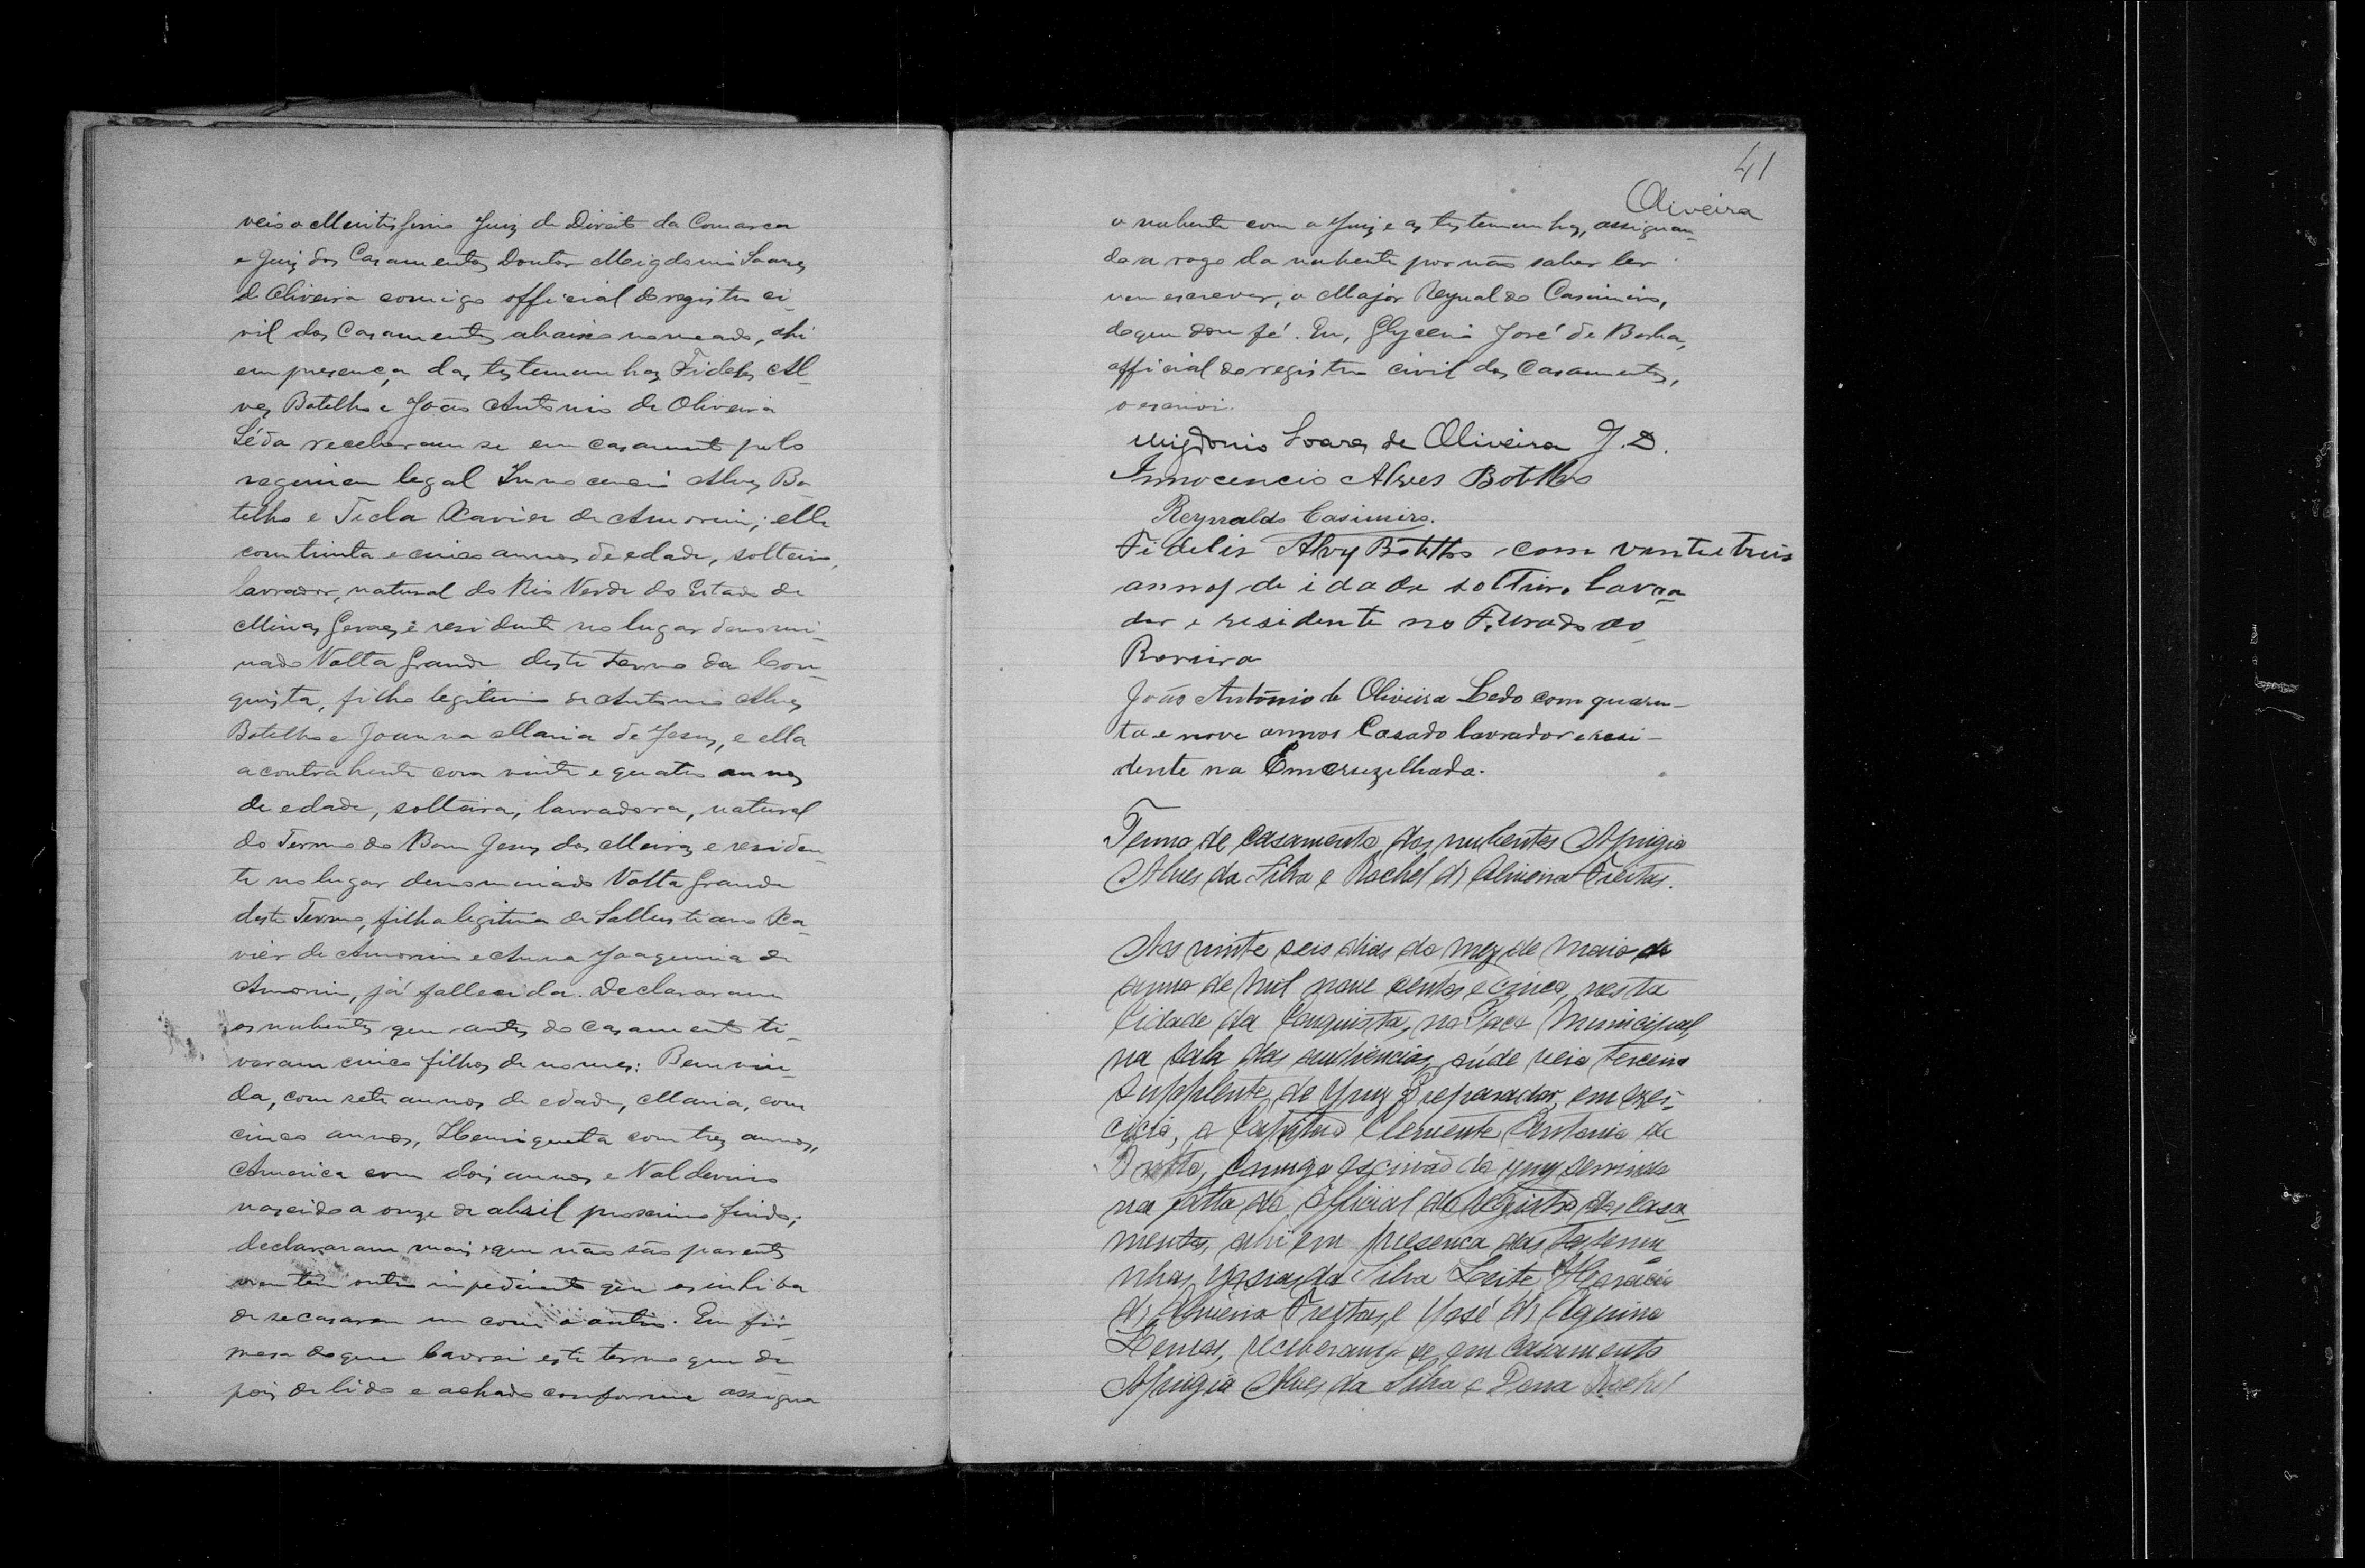 veio o Meritissimo Juiz de Direito da Comarca
e Juiz dos Casamentos Doutor Migdonio Soares
de Oliveira comigo official do registro ci-
vil dos Casamentos abaixo nomeado, ahi
em presença das testemunhas Fidelis Al-
ves Botelho e João Antonio de Oliveira
Lédo receberam se em casamento pelo
regimen legal Innocencio Alves Bo-
telho e Tecla Xavier de Amorim; elle
com trinta e cinco annos de edade, solteiro,
lavrador, natural do Rio Verde do Estado de
Minas Geraes e residente no lugar denomi-
nado Volta Grande deste Termo da Con-
quista, filho legitimo de Antonio Alves
Botelho e Joanna Maria de Jesus, e ella
a contrahente com vinte e quatro annos
de edade, solteira, lavradora, natural
do Termo do Bom Jesus dos Meiras e residen-
te no lugar denominado Volta Grande
deste Termo, filha legitima de Sallustiano Xa-
vier de Amorim e Anna Joaquina de
Amorim, já fallecida. Declararam
os nubentes que antes do casamento ti-
varam cinco filhos de nomes: Bemvin-
da, com sete annos de edade, Maria, com
cinco annos, Henriqueta com tres annos,
America com dois annos e Valdevino
nascido a onze de abril proximo findo;
declararam mais que não são parentes
nem tem outro impedimento que os inhiba
de se casarem um com o outro. Em fir-
mesa do que lavrei este termo que de-
pois de lido e achado conforme assigna
41
Oliveira
o nubente com o Juiz e as testemunhas, assignan-
do a rogo da nubente por não saber ler
nem escrever, o Major Reynaldo Casimiro,
do que dou fé. Eu, Glycerio José de Borba,
official do registro civil dos Casamentos,
o escrivi.
Migdonio Soares de Oliveira J. D.
Innocencio Alves Botelho
Reynaldo Casimiro.
Fidelis Alvs Botelho com vinte e treis
annos de idade soltiro lavra
dor e residente no Furado do
João Antônio de Oliveira Ledo com quaren-
ta e nove annos Casado lavrador e resi-
dente na Emcruzilhada.
Termo de casamento dos nubentes Aprigio
Alves da Silva e Rachel de Oliveira Freitas.
Aos vinte seis dias do mez de maio do
anno de mil nove centos e cinco, nesta
Cidade da Conquista, no Paço Municipal,
na sala das audiencias, aúde veio terceiro
supplente do Juiz Preparador, em exer-
cicio, o Capitão Clemente Antonio de
comigo escrivão do juiz servindo
na falta do official do registro dos casa
mentos, ahi em presença das testemu
nhas, Josias da Silva Leite, Horacio
de Oliveira Freitas, e José de Aquino
Lemos, receberam-se em casamento
Aprigio Alves da Silva e Dona Rachel